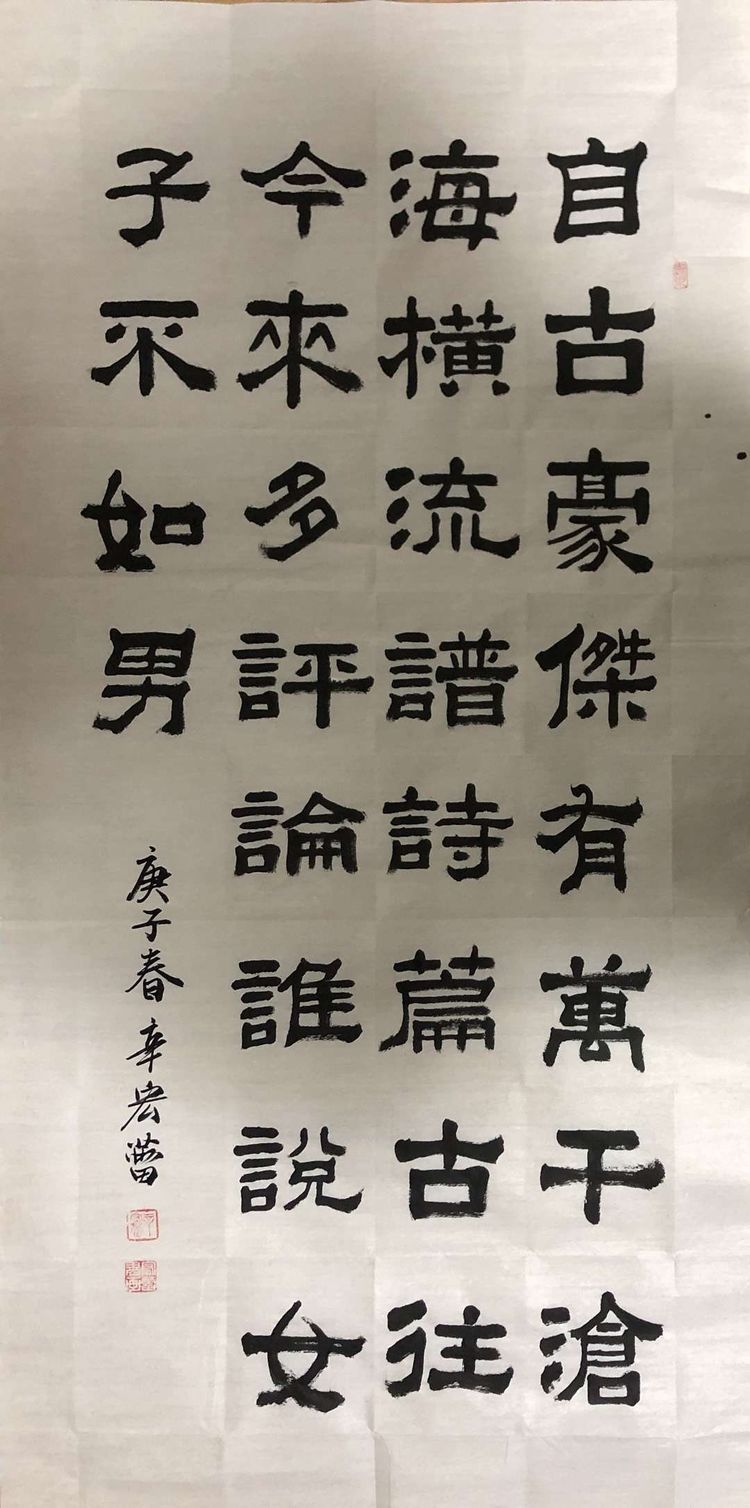 自古豪傑有萬千滄
海橫流譜詩篇古往
今來多評論誰說女
子不如男
庚子春辛宏蕾